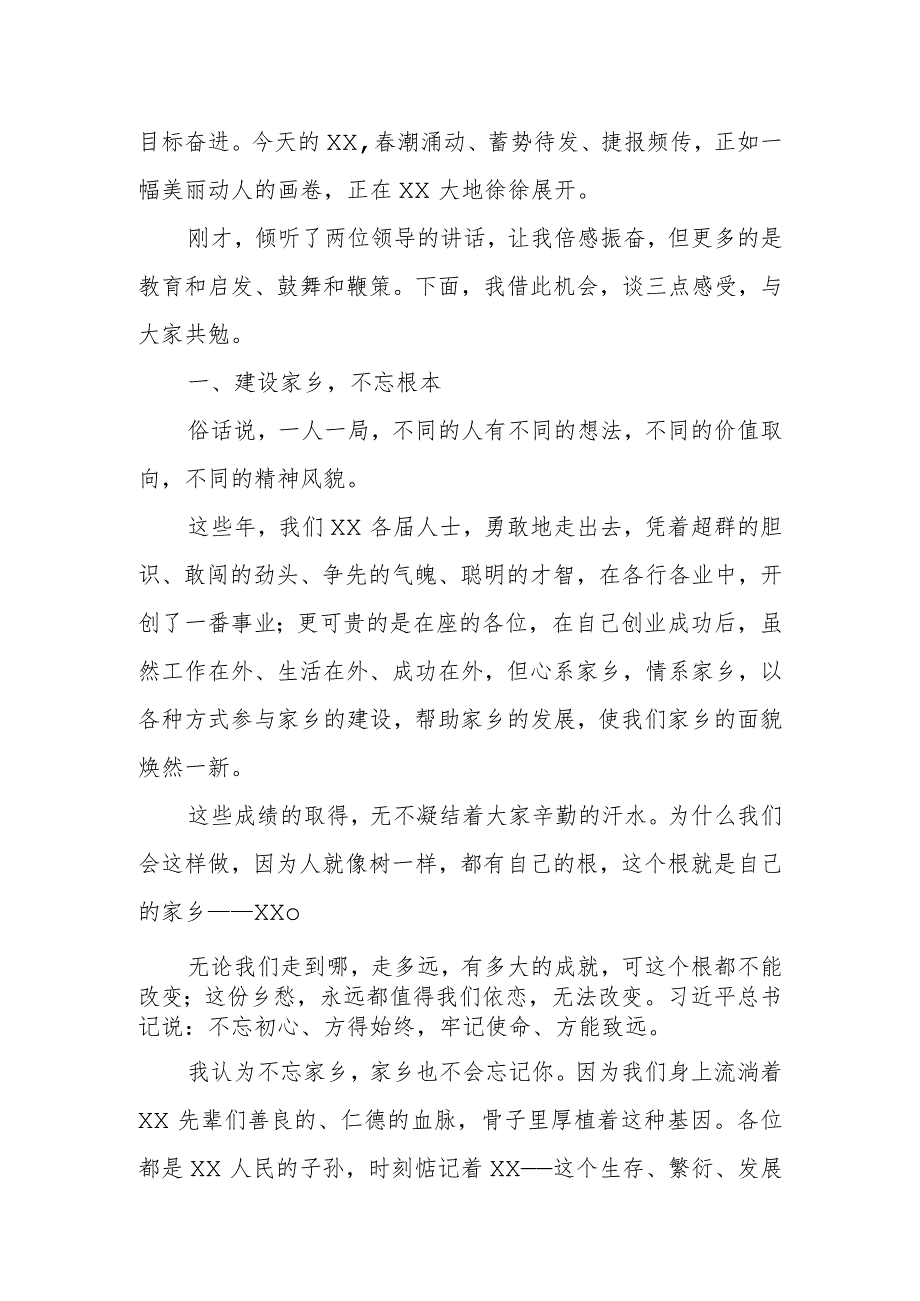 目标奋进。今天的 XX,春潮涌动、蓄势待发、捷报频传，正如一
幅美丽动人的画卷，正在 XX 大地徐徐展开。
刚才，倾听了两位领导的讲话，让我倍感振奋，但更多的是
教育和启发、鼓舞和鞭策。下面，我借此机会，谈三点感受，与
大家共勉。
一、建设家乡，不忘根本
俗话说，一人一局，不同的人有不同的想法，不同的价值取
向，不同的精神风貌。
这些年，我们 XX 各届人士，勇敢地走出去，凭着超群的胆
识、敢闯的劲头、争先的气魄、聪明的才智，在各行各业中，开
创了一番事业；更可贵的是在座的各位，在自己创业成功后，虽
然工作在外、生活在外、成功在外，但心系家乡，情系家乡，以
各种方式参与家乡的建设，帮助家乡的发展，使我们家乡的面貌
焕然一新。
这些成绩的取得，无不凝结着大家辛勤的汗水。为什么我们
会这样做，因为人就像树一样，都有自己的根，这个根就是自己
的家乡——XXo
无论我们走到哪，走多远，有多大的成就，可这个根都不能
改变；这份乡愁，永远都值得我们依恋，无法改变。习近平总书
记说：不忘初心、方得始终，牢记使命、方能致远。
我认为不忘家乡，家乡也不会忘记你。因为我们身上流淌着
XX 先辈们善良的、仁德的血脉，骨子里厚植着这种基因。各位
都是 XX 人民的子孙，时刻惦记着 XX——这个生存、繁衍、发展